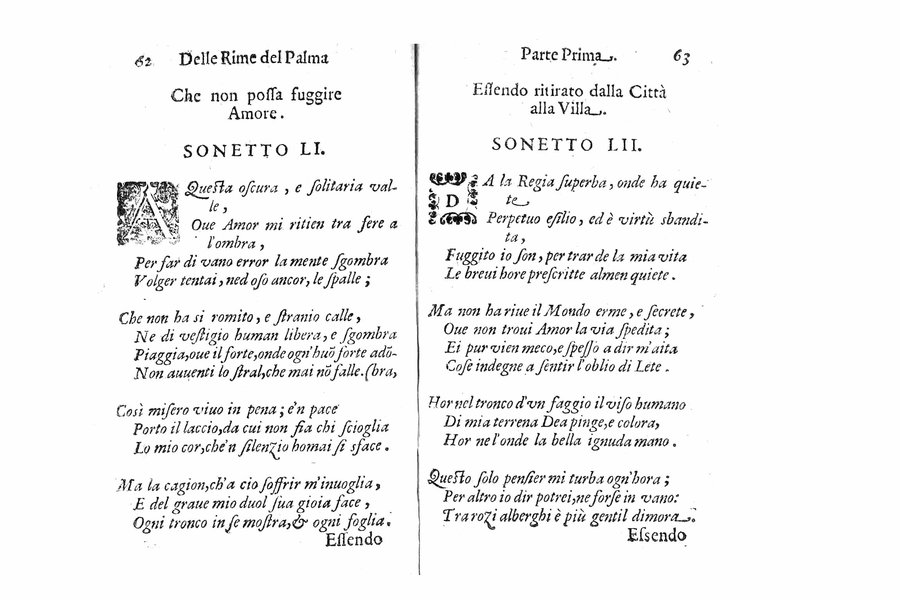 62 Delle Rime del Palma
Che non poſſa fuggire
Amore.
SONETTO LI.
A Queſta oſcura, e ſolitaria val-
le,
Oue Amor mi ritien tra fere a
l'ombra,
Per far di vano error la mente ſgombra
Volger tentai, ned oſo ancor, le ſpalle;
Che non ha si romito, e ſtranio calle,
Ne di veſtigio human libera, e ſgombra
Piaggia, oue il forte, onde ogn'huō forte adō-
Non auuenti lo ſtral, che mai nō falle. (bra,
Così miſero viuo in pena; e'n pace
Porto il laccio, da cui non fia chi ſcioglia
Lo mio cor, che'n ſilenzio homai ſi sface.
Ma la cagion, ch'a cio ſoffrir m'inuoglia,
E del graue mio duol ſua gioia face,
Ogni tronco in ſe moſtra, & ogni foglia.
Eſſendo
Parte Prima. 63
Eſſendo ritirato dalla Città
alla Villa.
SONETTO LII.
DA la Regia ſuperba, onde ha quie-
te
Perpetuo eſilio, ed è virtù sbandi-
ta,
Fuggito io ſon, per trar de la mia vita
Le breui hore preſcritte almen quiete.
Ma non ha riue il Mondo erme, e ſecrete,
Oue non troui Amor la via ſpedita;
Ei pur vien meco, e ſpeſſo a dir m'aita
Coſe indegne a ſentir l'oblio di Lete.
Hor nel tronco d'vn faggio il viſo humano
Di mia terrena Dea pinge, e colora,
Hor ne l'onde la bella ignuda mano.
Queſto ſolo penſier mi turba ogn'hora;
Per altro io dir potrei, ne forſe in vano:
Tra rozi alberghi è più gentil dimora.
Eſsendo